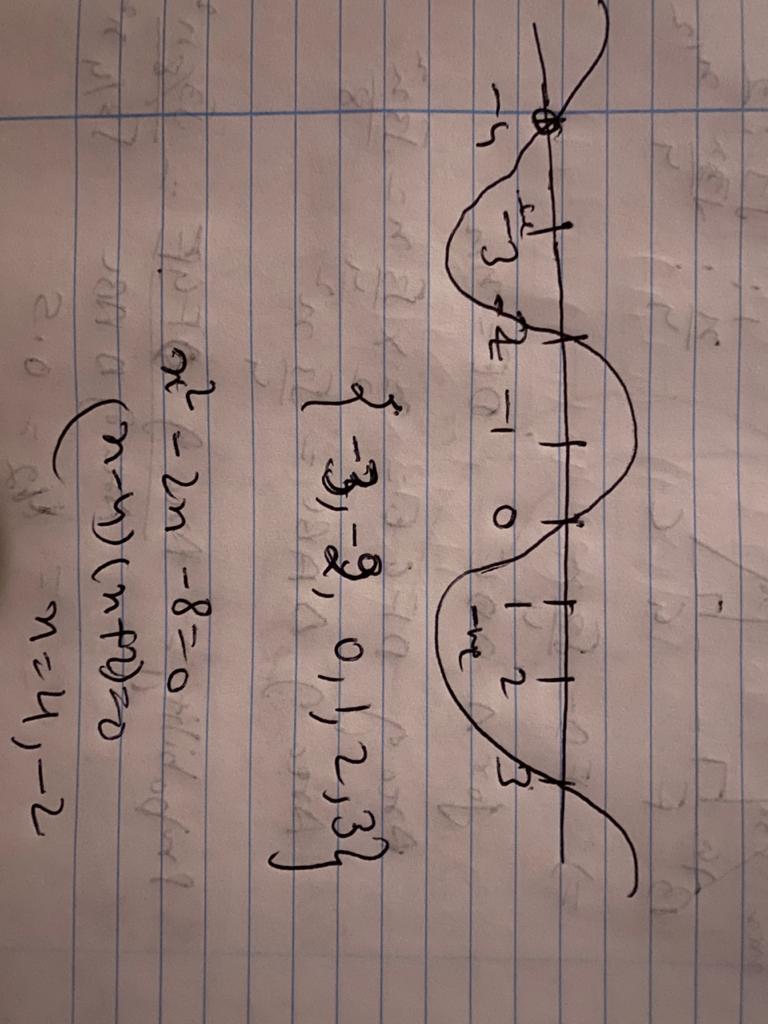 -4 -3 -2 -1 0 1 2 3
-ve
{ -3, -2, 0, 1, 2, 3}
x² - 2x - 8 = 0
(x-4)(x+2)=0
x=4, -2